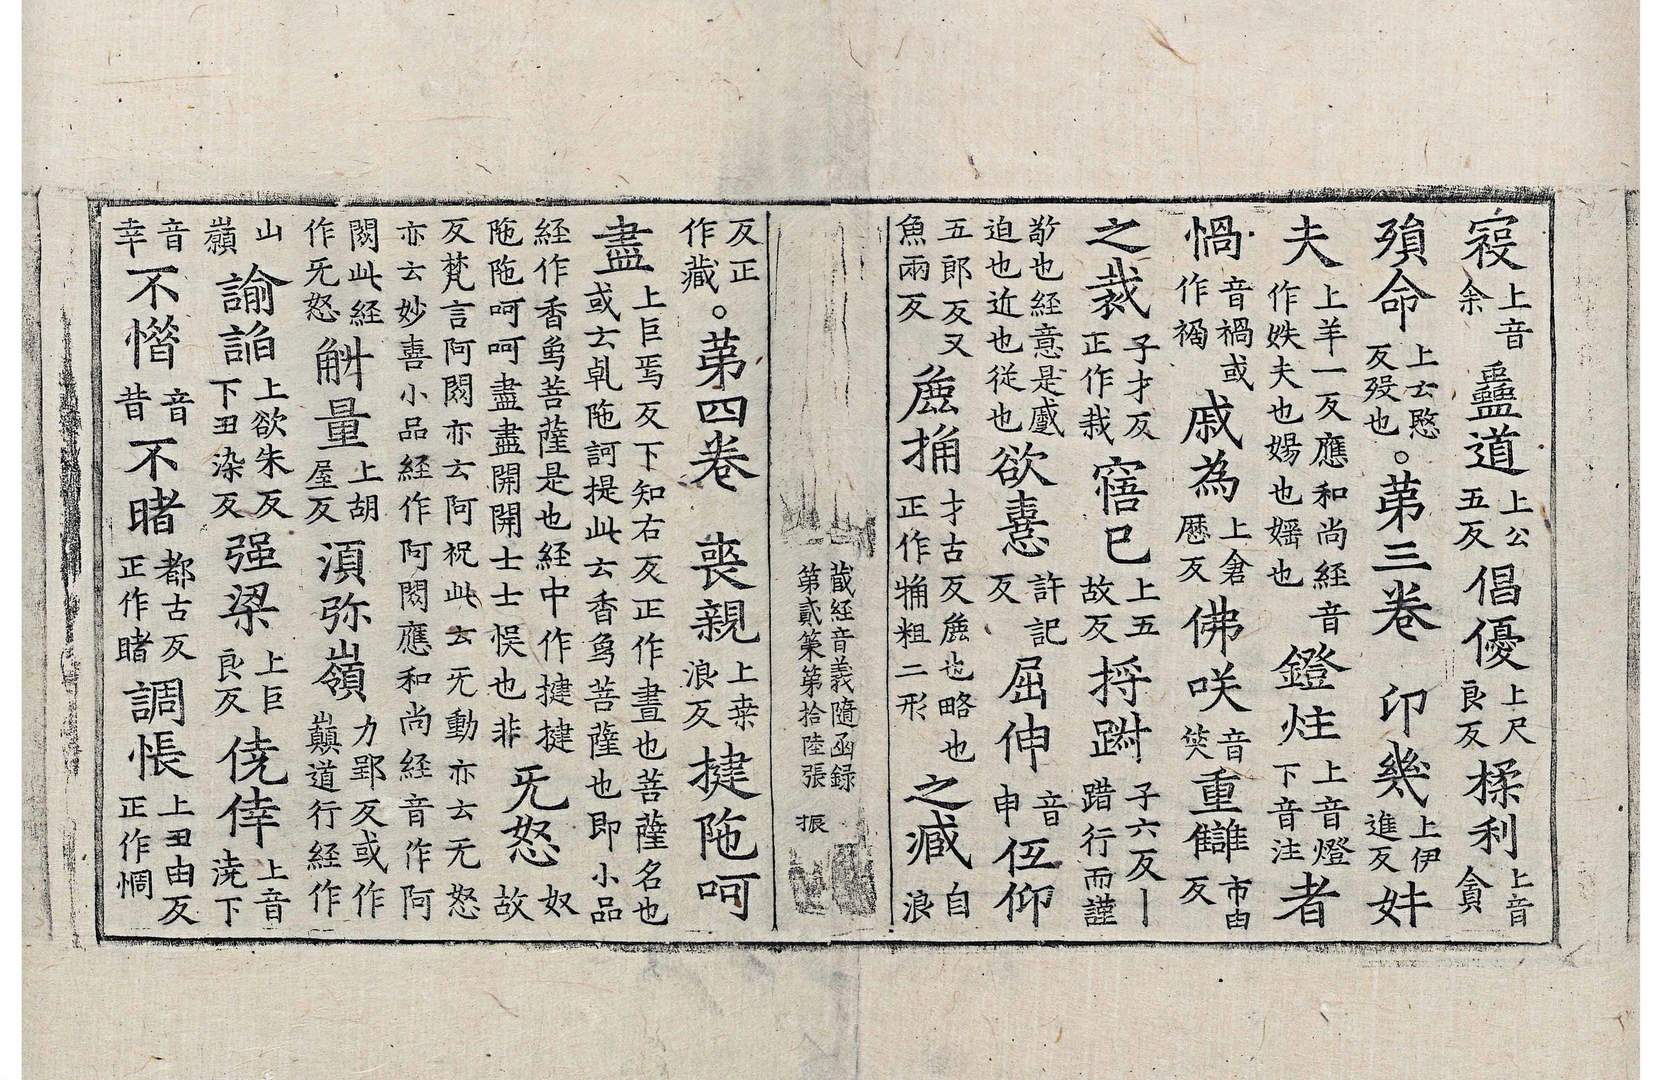 寑上音余蠱道上公五反倡優上尺良反揉利上音貪
殞命上云愍反歿也。第三卷　卭幾上伊進反奸
夫上羊一反應和尚經音作妷夫也婸也婬也鐙炷上音燈下音注者
㥬音禍或作禍戚為上倉歷反佛咲音笑重讎市由反
之裁子才反正作栽寤已上五故反捋踧子六反丨踖行而謹
㪍也經意是慼迫也近也從也欲憙許記反屈伸音申伍仰
五郎反又魚兩反麁捔才古反麁也略也正作觕粗二形之臧自浪
藏經音義隨函錄　第貳䇿第拾陸張　振
反正作藏。第四卷　喪親上桒浪反揵陁呵
盡上巨焉反下知右反正作晝也菩薩名也或云乹陁訶提此云香烏菩薩也即小品
經作香烏菩薩是也經中作揵揵陁陁呵呵盡盡開開士士悮也非旡怒奴故
反梵言阿閦亦云阿祝此云旡動亦云无怒亦云妙喜小品經作阿閦應和尚經音作阿
閦此經作旡怒斛量上胡屋反湏弥嶺力郢反或作巔道行經作
山嶺諭謟上欲朱反下丑染反强梁上巨良反僥倖上音澆下
音幸不憯音昔不睹都古反正作睹調悵上丑由反正作惆